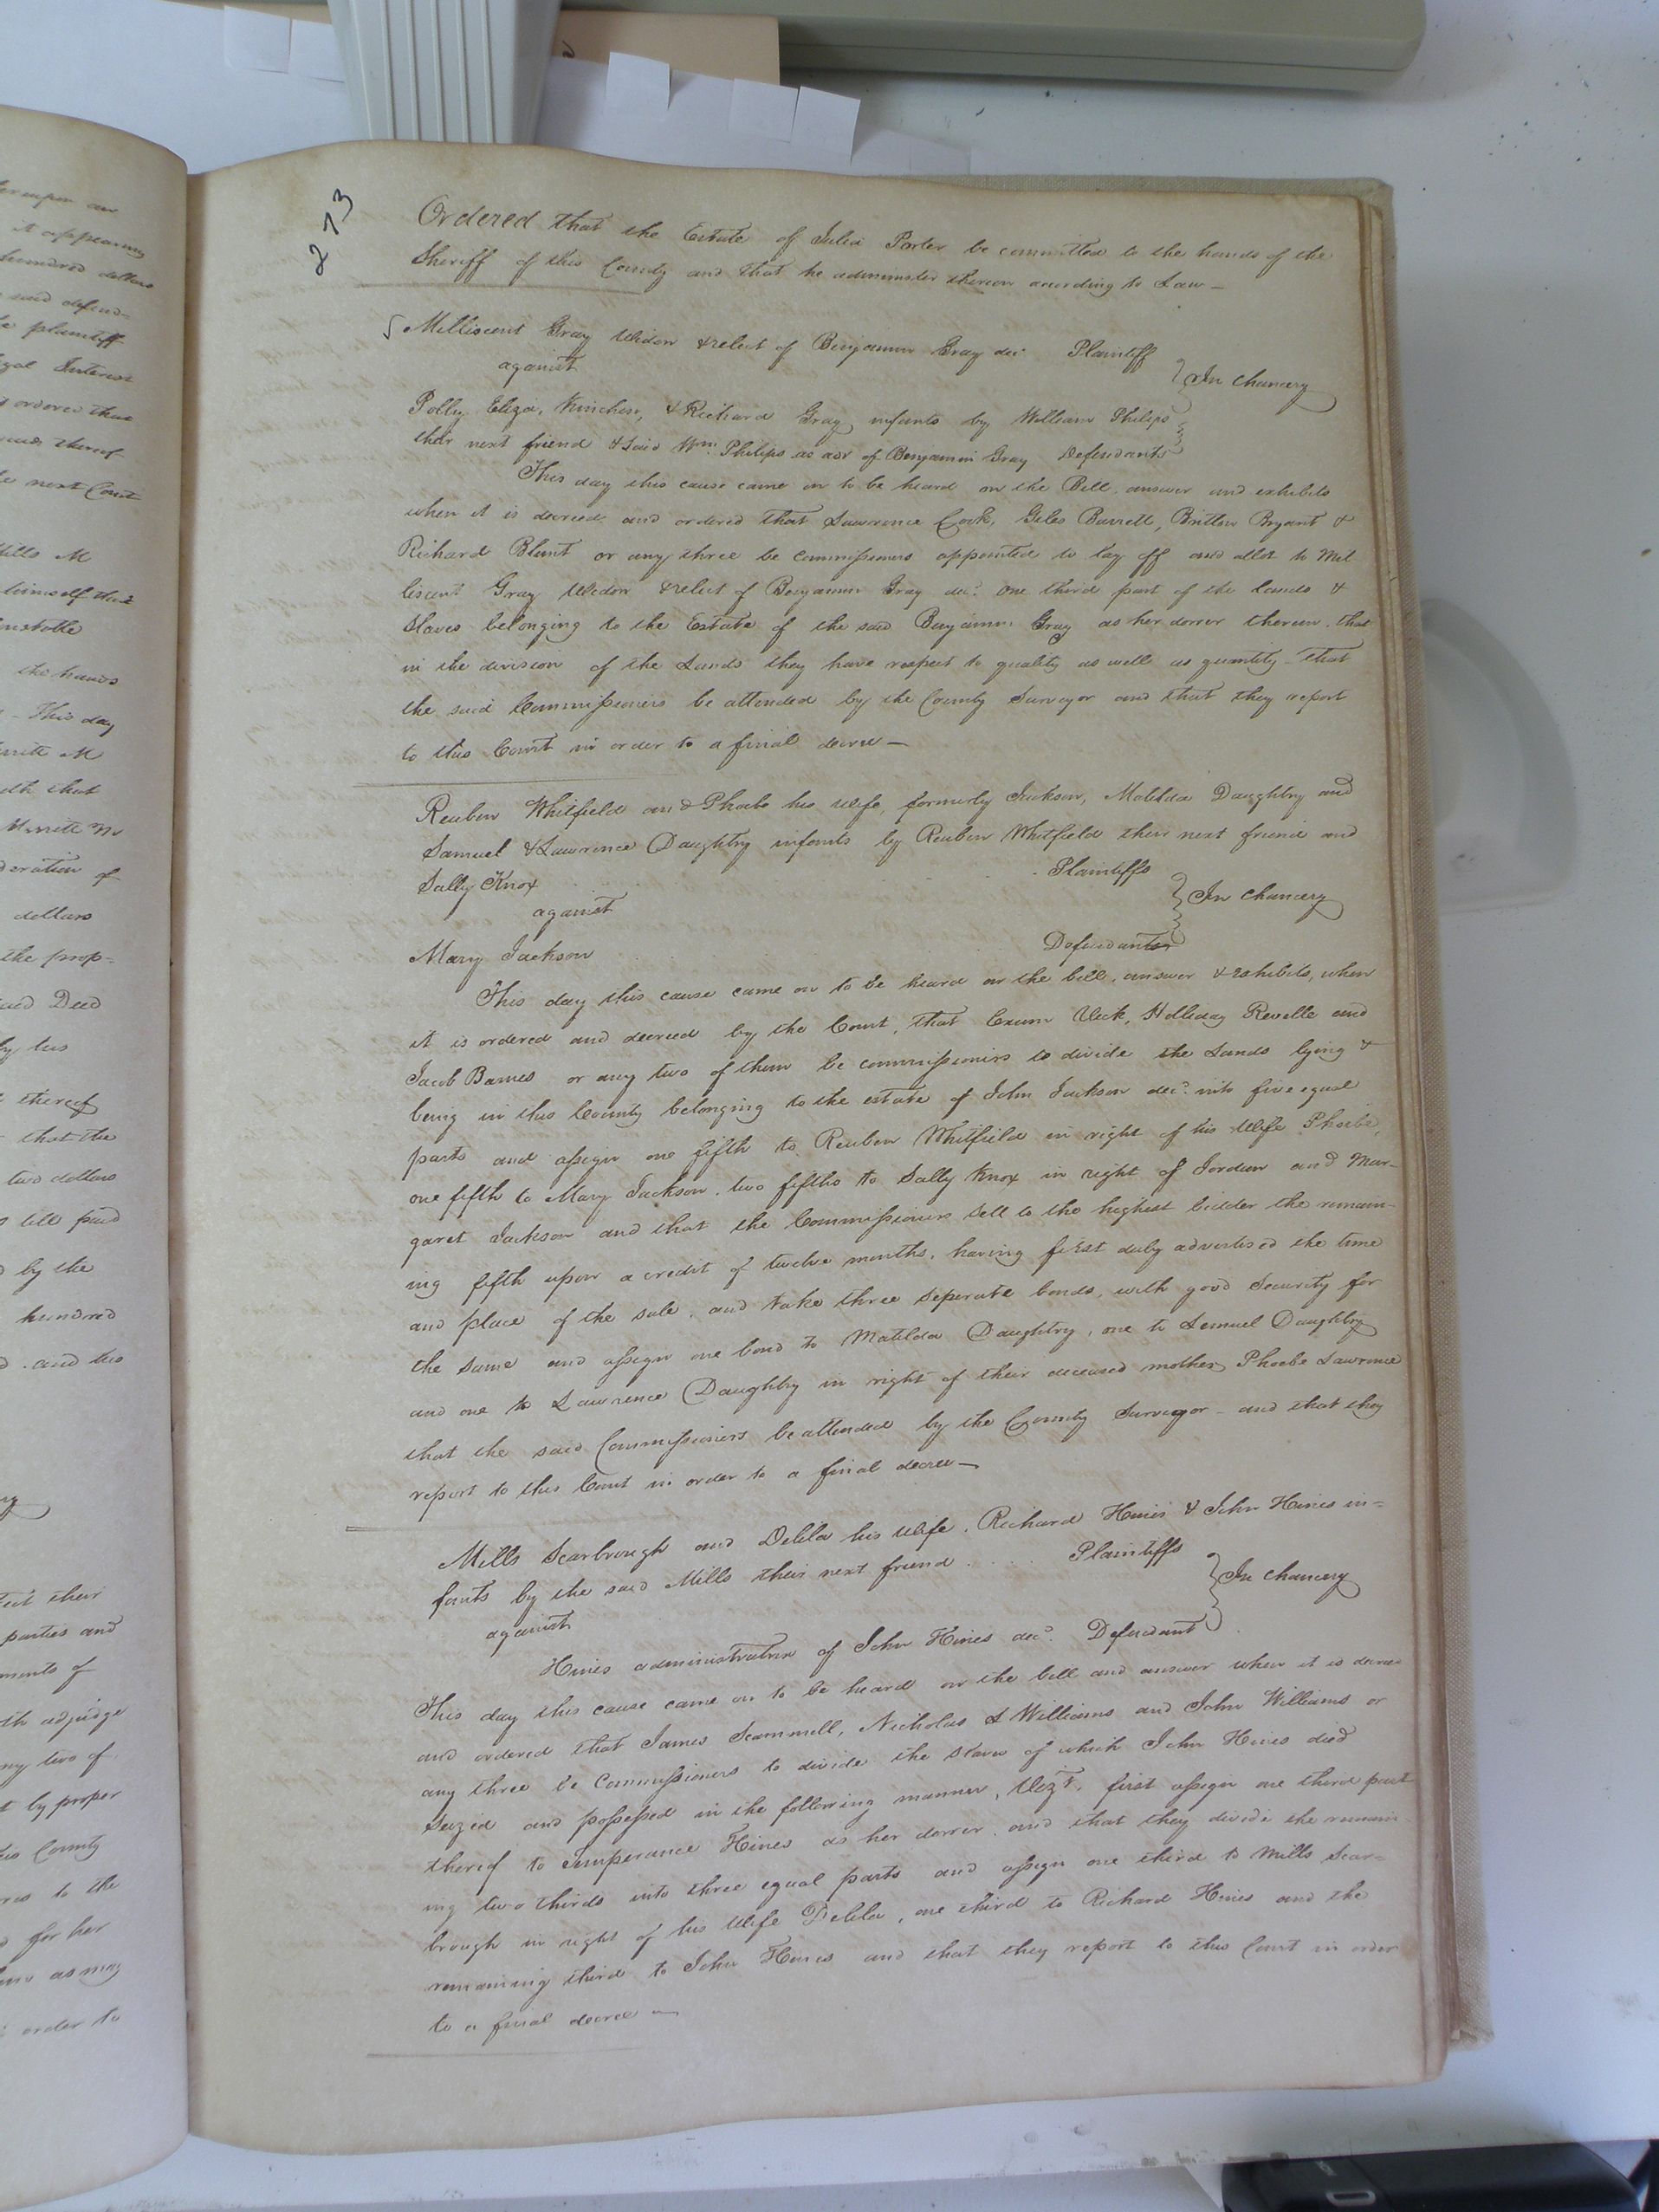 273
Ordered that the Estate of Julia Porter be committed to the hands of the
Sheriff of this County and that he administer thereon acording to Law —
Milliscent Gray Widow & relict of Benjamin Gray dec. Plaintiff
against
In chancery
Polly, Eliza, Kinchen, & Richard Gray infants by William Philips
their next friend & said Wm. Philips as adr of Benjamin Gray Defendants
This day this cause came on to be heard on the Bill, answer and exhibits
when it is decreed and ordered that Lawrence Cook, Giles Barrett, Britton Bryant &
Richard Blunt or any three be commissioners appointed to lay off and allot to Mil
liscent Gray Widow & relict of Benjamin Gray dec. one third part of the lands &
slaves belonging to the Estate of the said Benjamin Gray as her dower therein. that
in the division of the Lands they have respect to quality as well as quantity - that
the said Commissioners be attended by the County Surveyor and that they report
to this Court in order to a final decree —
Reuben Whitfield and Phoebe his wife, formerly Jackson, Matilda Daughtry and
Samuel & Lawrence Daughtry infants by Reuben Whitfield their next friend and
Sally Knox Plaintiffs
against
In chancery
Mary Jackson Defendant
This day this cause came on to be heard on the bill, answer & exhibits, when
it is ordered and decreed by the Court, that Exum Vick, Holliday Revelle and
Jacob Barnes or any two of them be commissioners to divide the Lands lying &
being in this County belonging to the estate of John Jackson dec. into five equal
parts and assign one fifth to Reuben Whitfield in right of his Wife Phoebe,
one fifth to Mary Jackson, two fifths to Sally Knox in right of Jordan and Mar-
garet Jackson and that the Commissioners sell to the highest bidder the remain-
ing fifth upon a credit of twelve months, having first duly advertised the time
and place of the sale, and take three seperate bonds, with good Security for
the same and assign one bond to Matilda Daughtry, one to Lemuel Daughtry
and one to Lawrence Daughtry in right of their deceased mother Phoebe Lawrence
that the said Commissioners be attended by the County Surveyor - and that they
report to this Court in order to a final decree —
Mills Scarbrough and Delila his Wife, Richard Hines & John Hines in=
fants by the said Mills their next friend Plaintiffs
against
In chancery
Hines administratrix of John Hines dec. Defendant
This day this cause came on to be heard on the bill and answer when it is decree
and ordered that James Scammell, Nicholas L Williams and John Williams or
any three be Commissioners to divide the slaves of which John Hines died
Seized and possessed in the following manner, Vizt. first assign one third part
thereof to Temperance Hines as her dower, and that they divide the remain
ing two thirds into three equal parts and assign one third to Mills Scar=
brough in right of his Wife Delila, one third to Richard Hines and the
remaining third to John Hines and that they report to this Court in order
to a final decree —